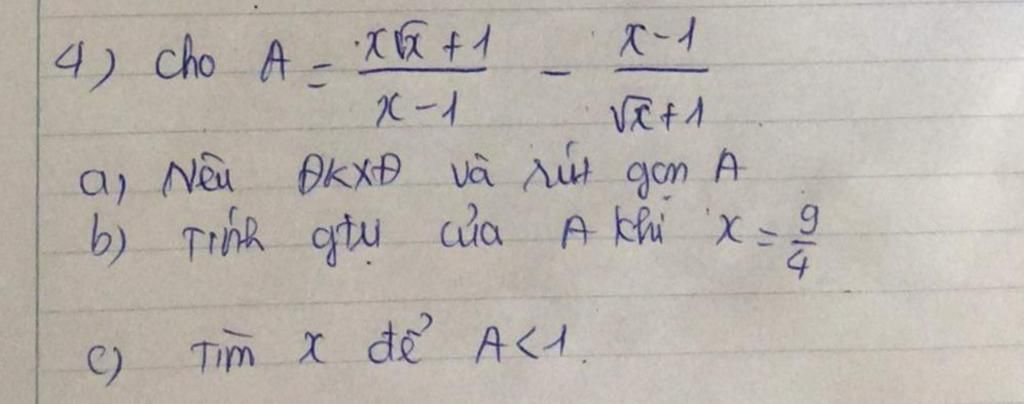 4) Cho A = \frac{x\sqrt{x}+1}{x-1} - \frac{x-1}{\sqrt{x}+1}
a) Nêu ĐKXĐ và rút gọn A
b) Tính gtrị của A khi x = \frac{9}{4}
c) Tìm x để A < 1.